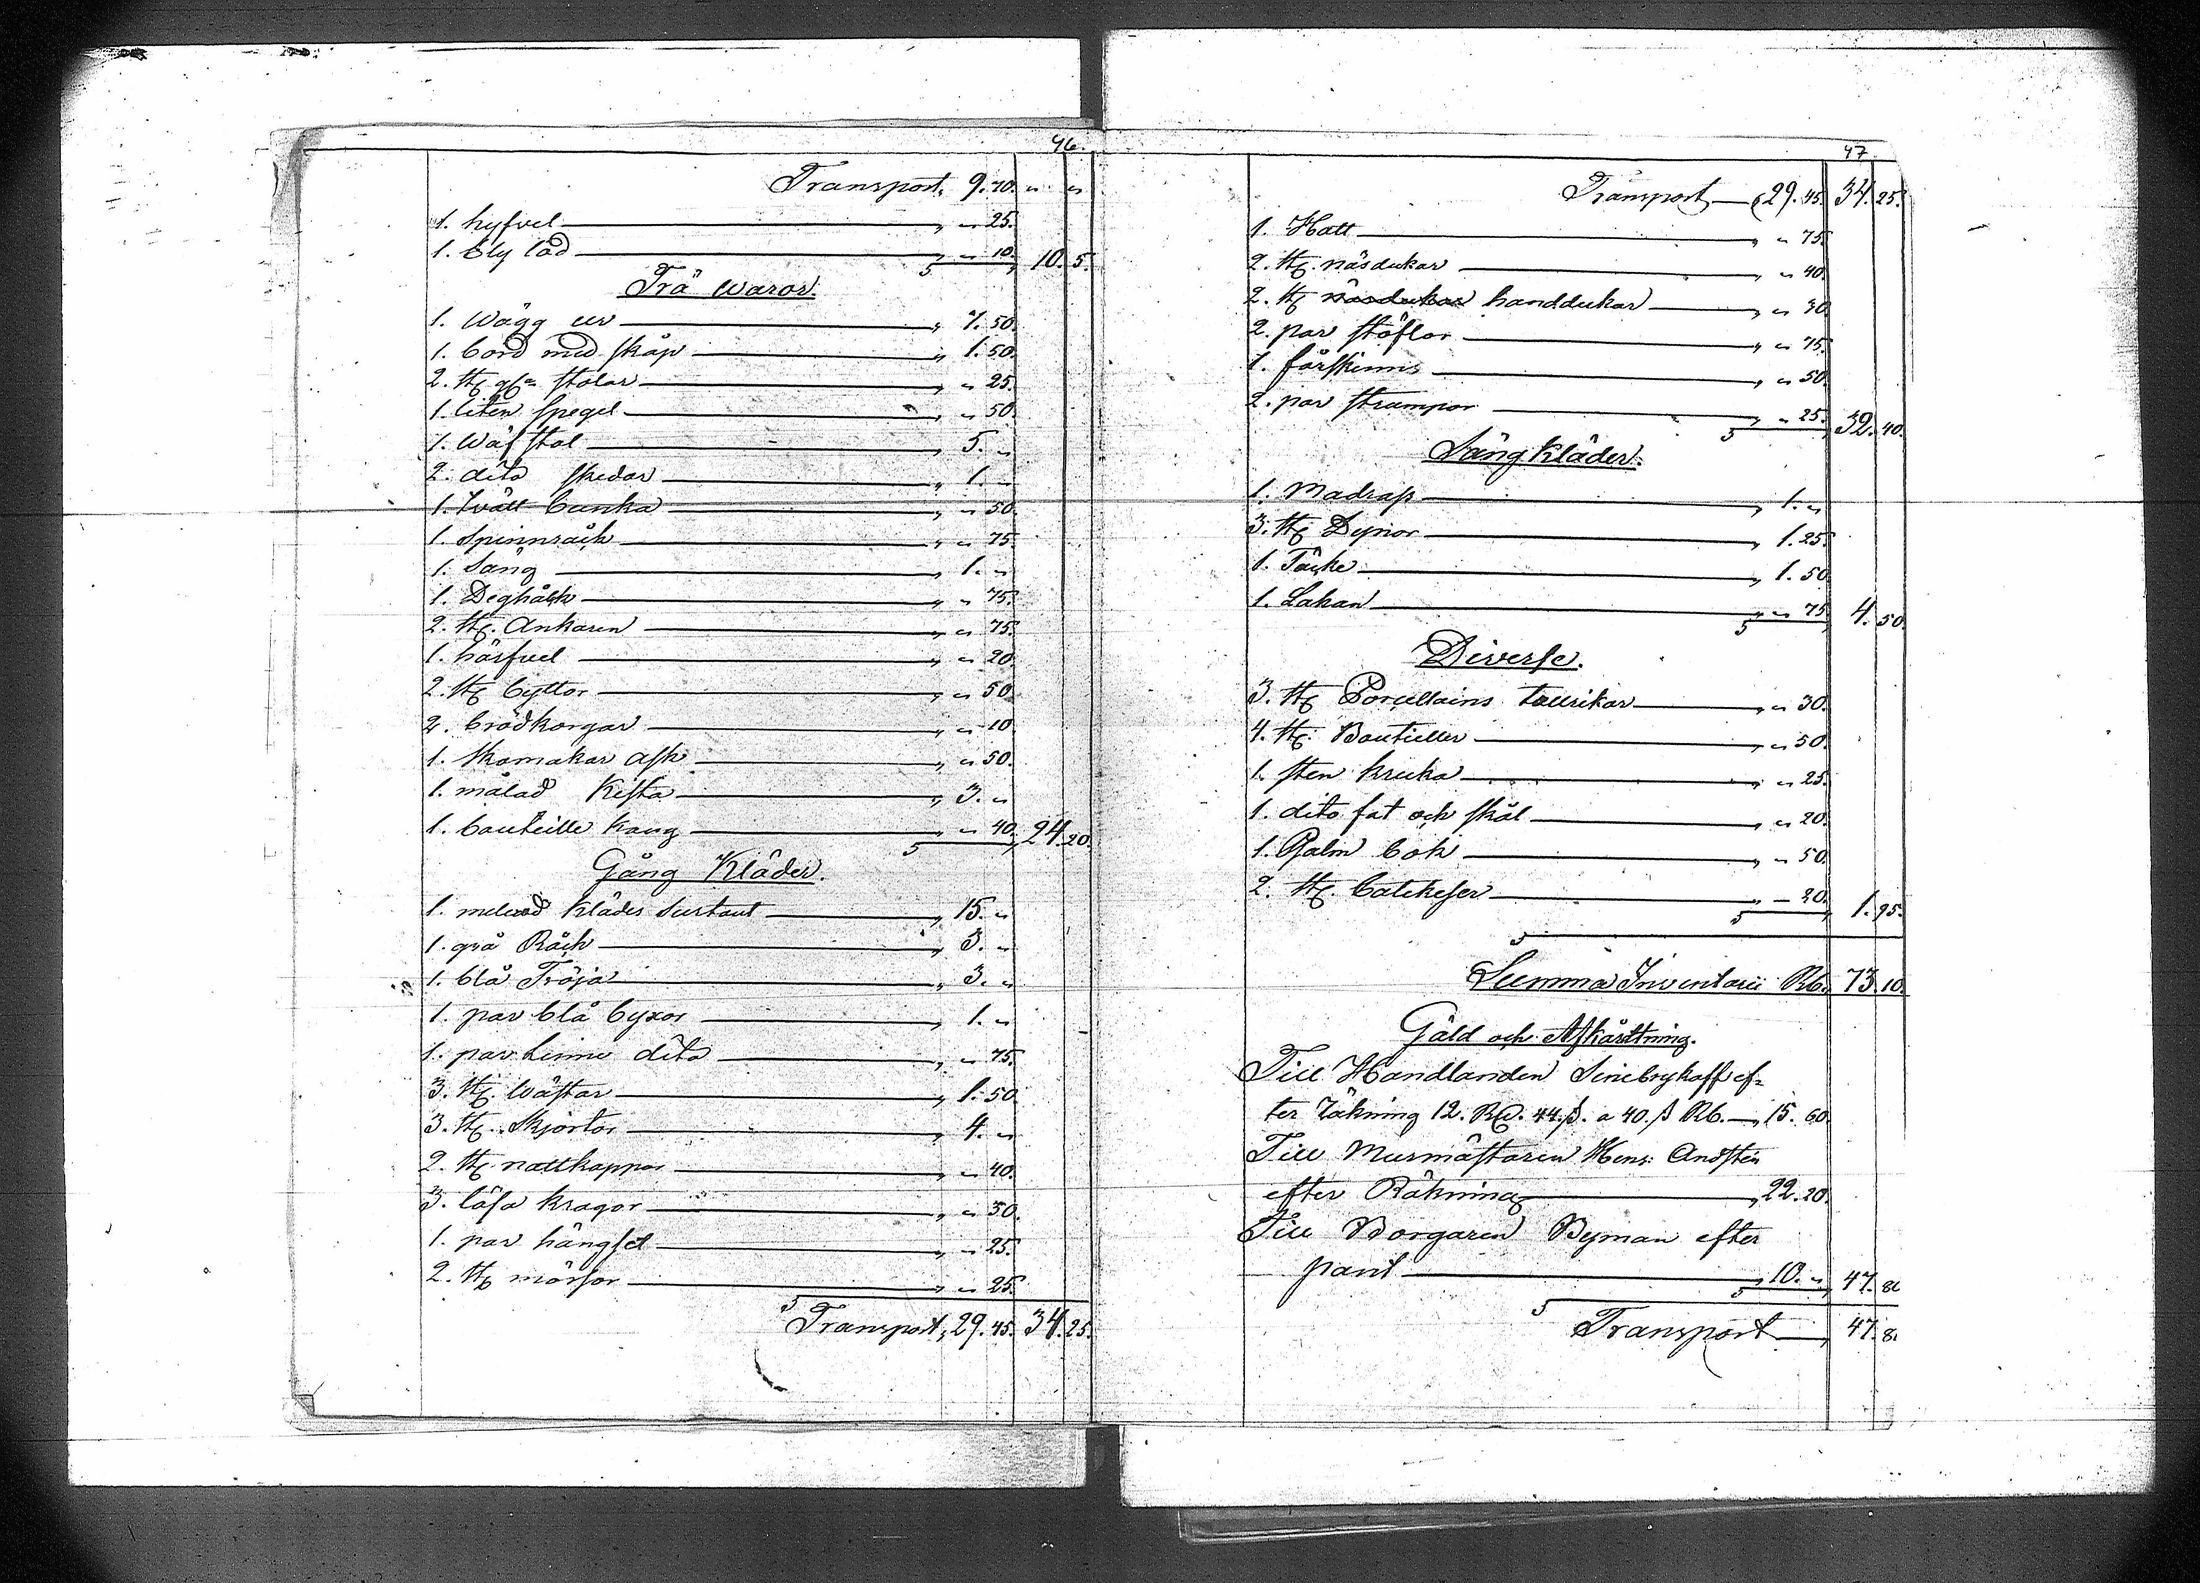 46.
Transport, 9. 70. " "
1. hyfvel " " 25.
1. bly låd " " 10. 10. 5.
Trä waror.
1. Wägg ur " 7. 50.
1. bord med skåp " 1. 50.
2. st. stolar " " 25.
1. liten spegel " " 50.
1. Wäfstol " 5. "
2. dito skedar " 1. "
1. tvätt bunka " " 50.
1. Spinnråck " " 75.
1. Säng " 1. "
1. Deghålk " " 75.
2. st. Ankaren " " 75.
1. härfvel " " 20.
2. st. byttor " " 50.
2. brödkorgar " " 10.
1. skomakar ask " " 50.
1. målad Kista " 3. "
1. bouteille korg " " 40. 24. 20.
Gång Kläder.
1. melerad Klädes Surtout " 15. "
1. grå Råck " 3. "
1. blå Tröja " 3. "
1. par blå byxor " 1. "
1. par linne dito " " 75.
3. st. Wästar " 1. 50.
3. st. Skjortor " 4. "
2. st. nattkappor " " 40.
3. lösa kragor " " 30.
1. par hängsel " " 25.
2. st. mössor " " 25.
Transport, 29. 45. 34. 25.
47.
Transport 29. 45. 34. 25.
1. Hatt " " 75.
2. st. näsdukar " " 40.
2. st. näsdukar handdukar " " 30.
2. par stöflor " " 75.
1. förskinns " " 50.
2. par strumpor " " 25. 32. 40.
Sängkläder.
1. Madrass " 1. "
3. st. Dynor " 1. 25.
1. Täcke " 1. 50.
1. Lakan " " 75. 4. 50.
Diverse.
3. st. Porcellains tallrikar " " 30.
4. st. Boutiller " " 50.
1. sten kruka " " 25.
1. dito fat och skål " " 20.
1. Psalm bok " " 50.
2. st. Catekeser " " 20. 1. 95.
Summa Inventarii Rb. 73. 10.
Gäld och Afkårttning.
Till Handlanden Sinebrykoff ef-
ter räkning 12. Rd. 44. s. a 40. s Rb. 15. 60.
Till Murmästaren Hens: Andstén
efter Räkning 22. 20.
Till Borgaren Byman efter
pant " 10. " 47. 80
Transport 47. 8